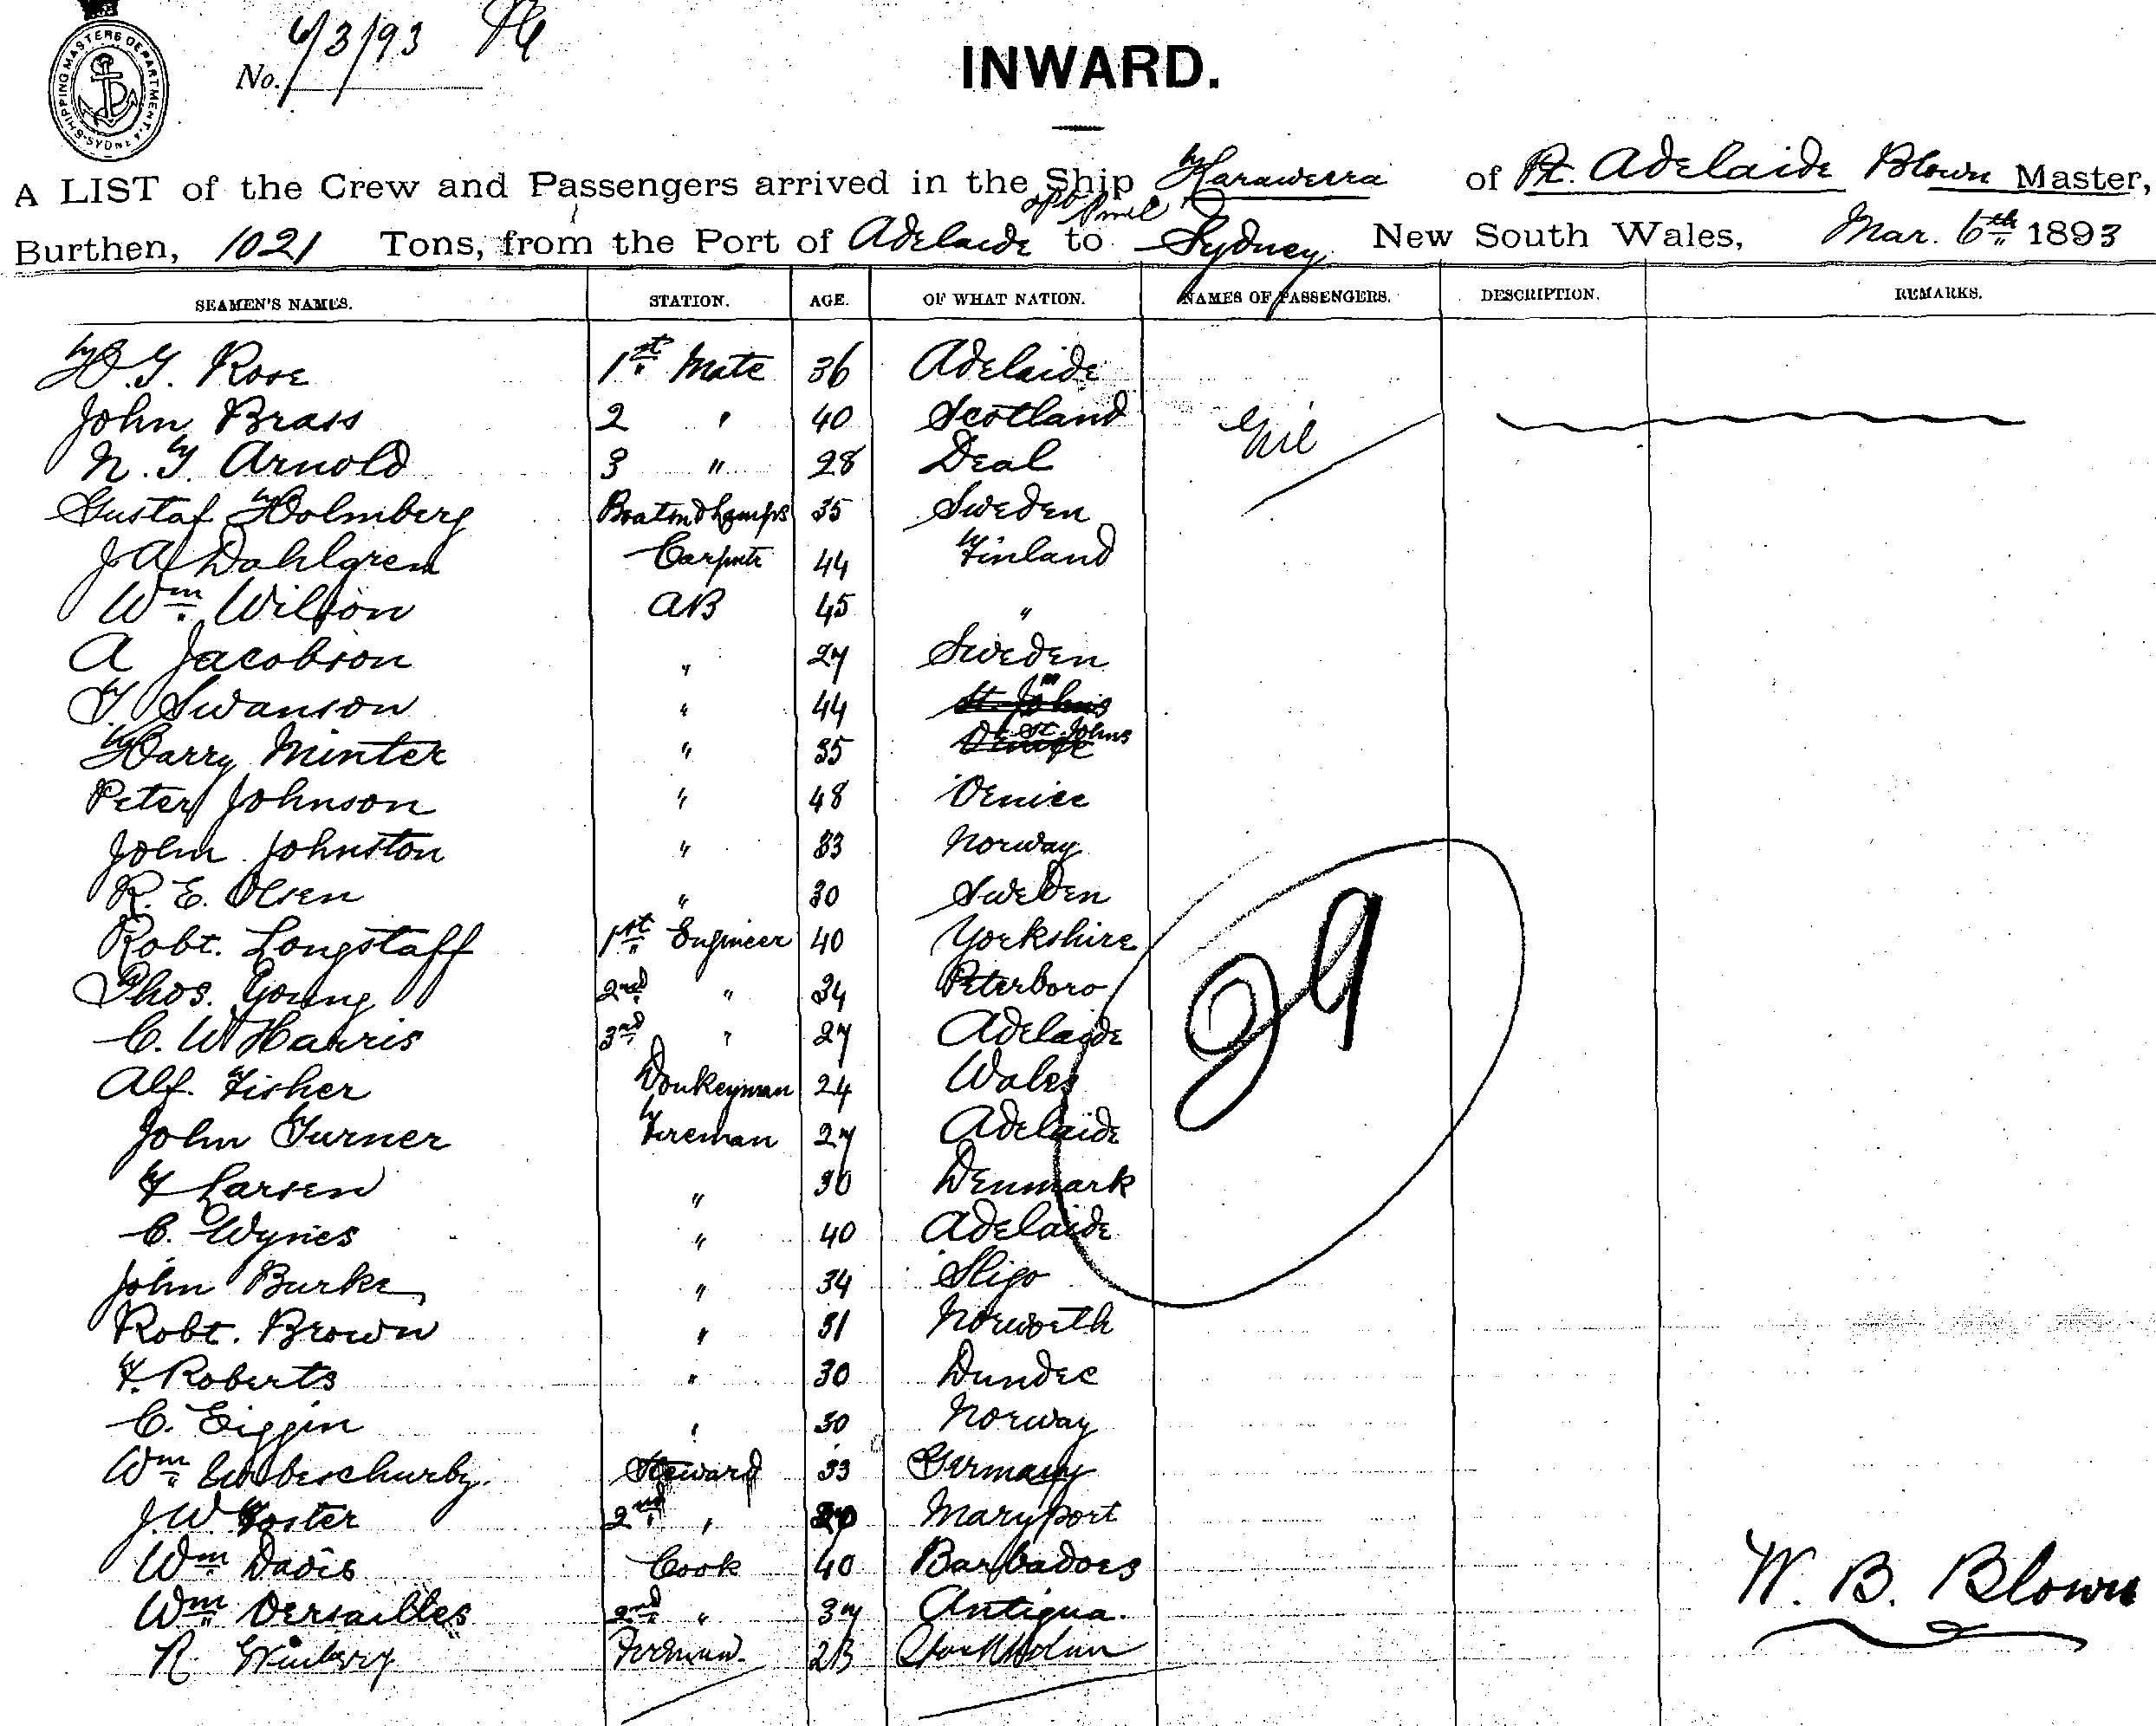 SHIPPING MASTERS DEPARTMENT SYDNEY
No. 6/3/93
INWARD.
A LIST of the Crew and Passengers arrived in the Ship Karaweera of Pt. Adelaide Blown Master,
Burthen, 1021 Tons, from the Port of Adelaide to Sydney New South Wales, Mar. 6th 1893
SEAMEN'S NAMES. STATION. AGE. OF WHAT NATION. NAMES OF PASSENGERS. DESCRIPTION. REMARKS.
H. G. Rose 1st Mate 36 Adelaide
John Brass 2 " 40 Scotland Nil
N. T. Arnold 3 " 28 Deal
Gustaf Holmberg 35 Sweden
J A Dahlgren Carpntr 44 Finland
Wm Wilson AB 45 "
A Jacobson " 27 Sweden
T Swanson " 44 St. Johns
Harry Minter " 35 St. Johns
Peter Johnson " 48 Venice
John Johnston " 33 Norway
R. E. Olsen " 30 Sweden
Robt. Longstaff 1st Engineer 40 Yorkshire
Thos. Young 2nd " 34 Peterboro
C. W Harris 3rd " 27 Adelaide
29
Alf. Fisher Donkeyman 24 Wales
John Turner Fireman 27 Adelaide
F Larsen " 30 Denmark
C. Wynes " 40 Adelaide
John Burke " 34 Sligo
Robt. Brown " 31 Norworth
F. Roberts " 30 Dundee
C. Eiggin " 30 Norway
Wm Steward 33 Germany
J. W. Foster 2nd " Maryport
Wm Davis Cook 40 Barbadoes
Wm Versailles 2nd " 37 Antigua.
R. Fireman. 23 Stockholm
W. B. Blown